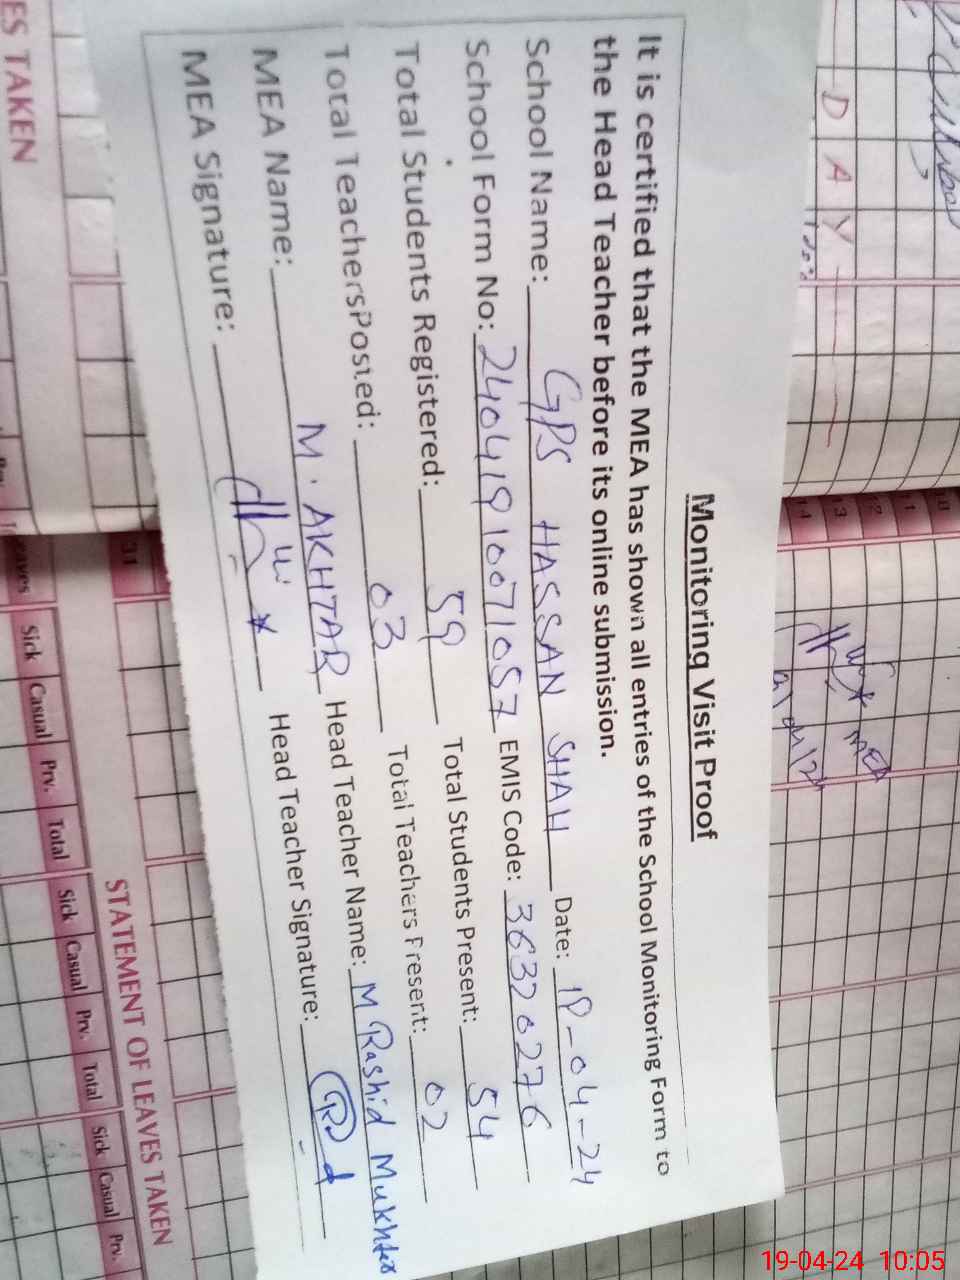 Monitoring Visit Proof
It is certified that the MEA has shown all entries of the School Monitoring Form to
the Head Teacher before its online submission.
School Name: GPS HASSAN SHAH Date: 19-04-24
School Form No: 24041910071057 EMIS Code: 36320276
Total Students Registered: 59 Total Students Present: 54
Total TeachersPosted: 03 Total Teachers Present: 02
MEA Name: M. AKHTAR Head Teacher Name: M Rashid Mukhtar
MEA Signature: Head Teacher Signature:
D A Y
10
11
12
13
14
MEA
ES TAKEN
31
STATEMENT OF LEAVES TAKEN
Sick Casual Prv. Total Sick Casual Prv. Total Sick Casual Prv.
19-04-24 10:05